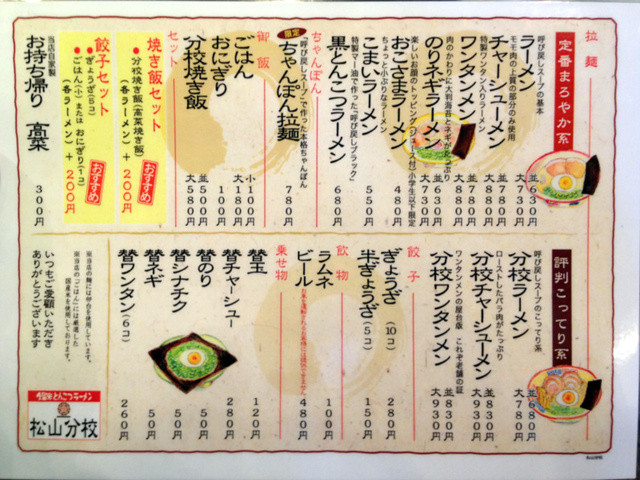 拉麺
定番まろやか系
呼び戻しスープの基本
ラーメン
並630円
大730円
モモ肉の上質の部分のみ使用
チャーシューメン
並780円
大880円
特製ワンタン入りラーメン
ワンタンメン
並780円
大880円
のりネギラーメン
並630円
大730円
おこさまラーメン
480円
ちょっと小ぶりなラーメン
こまいラーメン
550円
特製マー油で作った“呼び戻しブラック”
黒とんこつラーメン
680円
ちゃんぽん
限定
“呼び戻しスープ”で作った本格ちゃんぽん
ちゃんぽん拉麺
780円
御飯
ごはん
小100円
大180円
おにぎり
100円
分校焼き飯
並500円
大580円
セット
焼き飯セット
・分校焼き飯(高菜焼き飯)
(各ラーメン)+200円
おすすめ
餃子セット
・ぎょうざ(5コ)
・ごはん(小)またはおにぎり(1コ)
(各ラーメン)+200円
おすすめ
当店自家製
お持ち帰り 高菜
300円
評判こってり系
呼び戻しスープのこってり系
分校ラーメン
並680円
大780円
ローストしたバラ肉がたっぷり
分校チャーシューメン
並830円
大930円
ワンタンメンの屋台版 これぞ老舗の証
分校ワンタンメン
並830円
大930円
餃子
ぎょうざ(10コ)
280円
半ぎょうざ(5コ)
150円
飲物
ラムネ
100円
ビール
480円
乗せ物
替玉
120円
替チャーシュー
280円
替のり
50円
替シナチク
50円
替ネギ
50円
替ワンタン(6コ)
260円
※当店の麺には卵白を使用しています。
※当店の「ごはん」には厳選した
国産米を使用しております。
いつもご愛顧いただき
ありがとうございます
久留米とんこつラーメン
松山分校